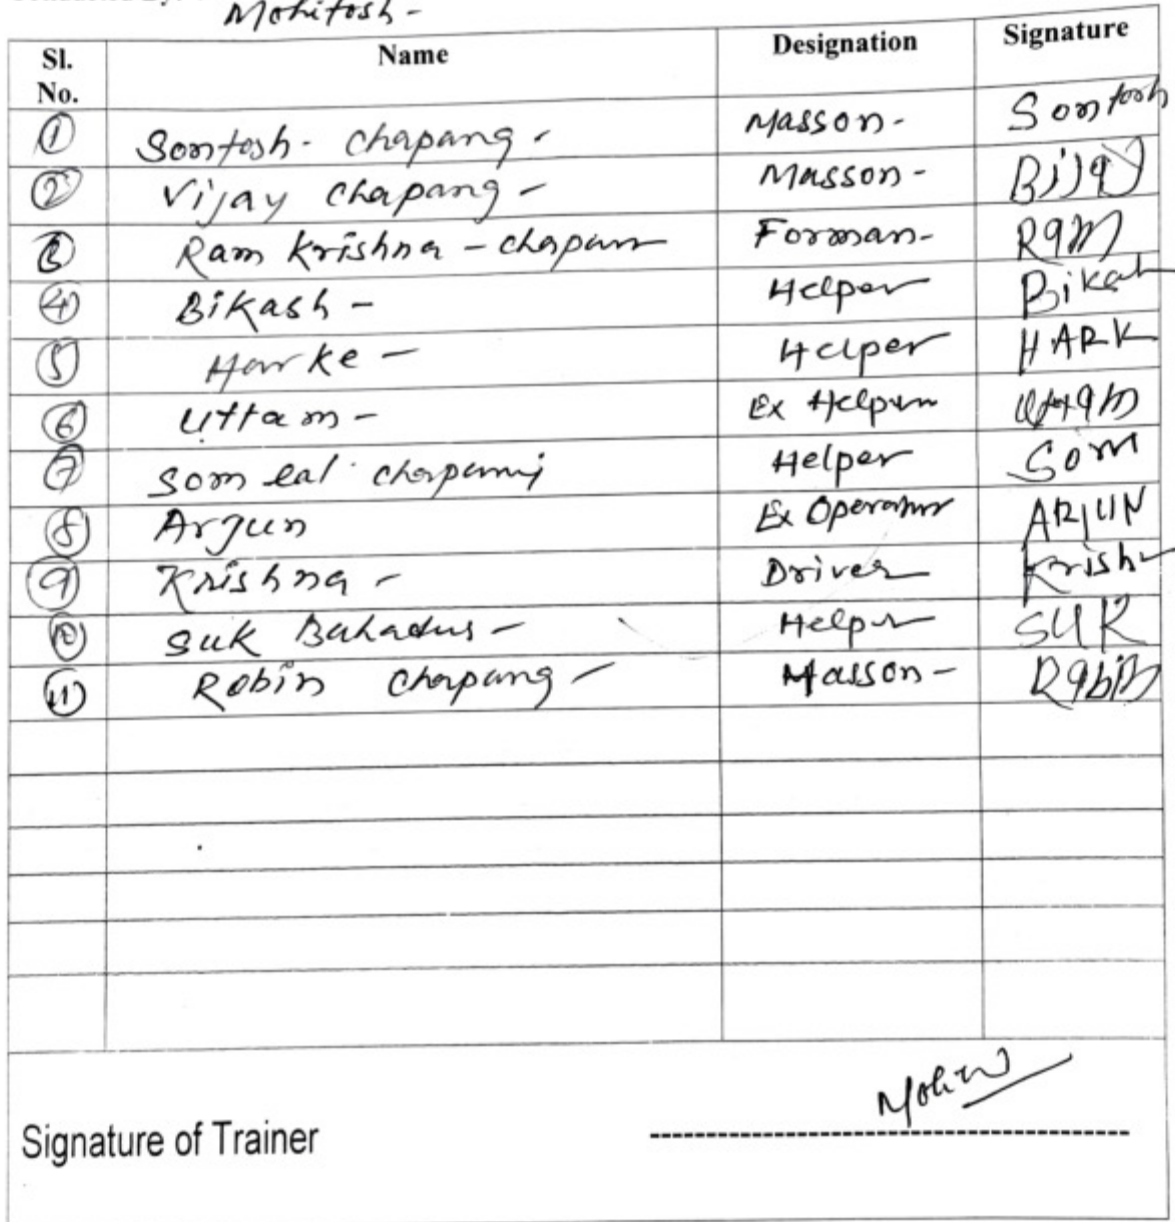 Mohitosh-
Sl. No. Name Designation Signature
1 Sontosh- Chapang- Masson- Sontosh
2 Vijay Chapang- Masson- Bijay
3 Ram Krishna - chapan Forman- Ram
4 Bikash- Helper Bikash
5 Harke- Helper HARK
6 Uttam- Ex Helper Uttam
7 Som lal chapang Helper Som
8 Arjun Ex Operator ARJUN
9 Krishna- Driver Krish
10 Suk Bahadur- Helper SUK
11 Robin Chapang- Masson- Rabin
Signature of Trainer